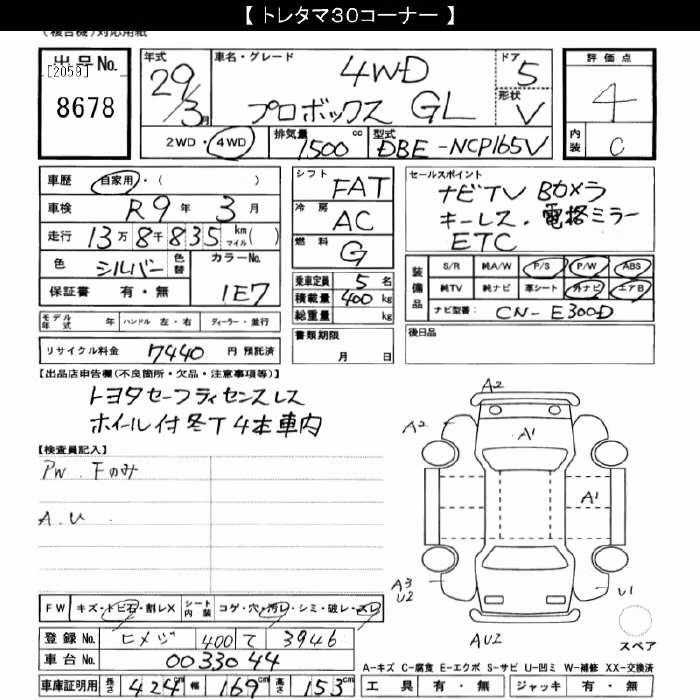 【 トレタマ30コーナー 】
(複合機)対応用紙
出品No. [2059] 8678
年式 29/3月
車名・グレード 4WD プロボックス GL
ドア 5
形状 V
2WD・4WD
排気量 1500 cc
型式 DBE-NCP165V
評価点 4
内装 C
車歴 自家用・( )
車検 R9年 3月
走行 13万8千835 km マイル( )
色 シルバー 色替 カラーNo. 1E7
保証書 有・無
モデル年式 年 ハンドル 左・右 ディーラー・並行
リサイクル料金 7440 円 預託済
シフト FAT
冷房 AC
燃料 G
乗車定員 5名
積載量 400 kg
総重量 kg
書類期限 月 日
セールスポイント
ナビTV Bカメラ
キーレス.電格ミラー
ETC
装備品 S/R 純A/W P/S P/W ABS
純TV 純ナビ 革シート 外ナビ エアB
ナビ型番: CN-E300D
後日品
【出品店申告欄(不良箇所・欠品・注意事項等)】
トヨタセーフティセンスレス
ホイール付冬T4本車内
【検査員記入】
PW.Fのみ
A.U
FW キズ・トビ石・割レX シート内装 コゲ・穴・汚レ・シミ・破レ・スレ
登録No. ヒメジ 400 て 3946
車台No. 0033044
車庫証明用 長さ 424cm 幅 169cm 高さ 153cm
A2
A2
A1
A1
A3
U2
U1
AU2
スペア
A-キズ C-腐食 E-エクボ S-サビ U-凹ミ W-補修 XX-交換済
工具 有・無 ジャッキ 有・無